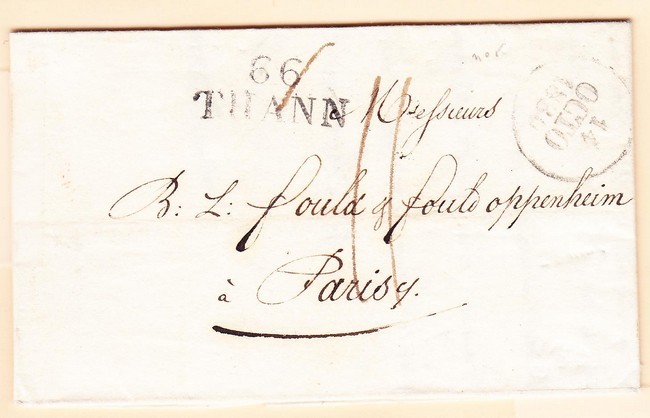 66
THANN
à Messieurs
B: L: fould & fould oppenheim
à Paris
14
OCTO